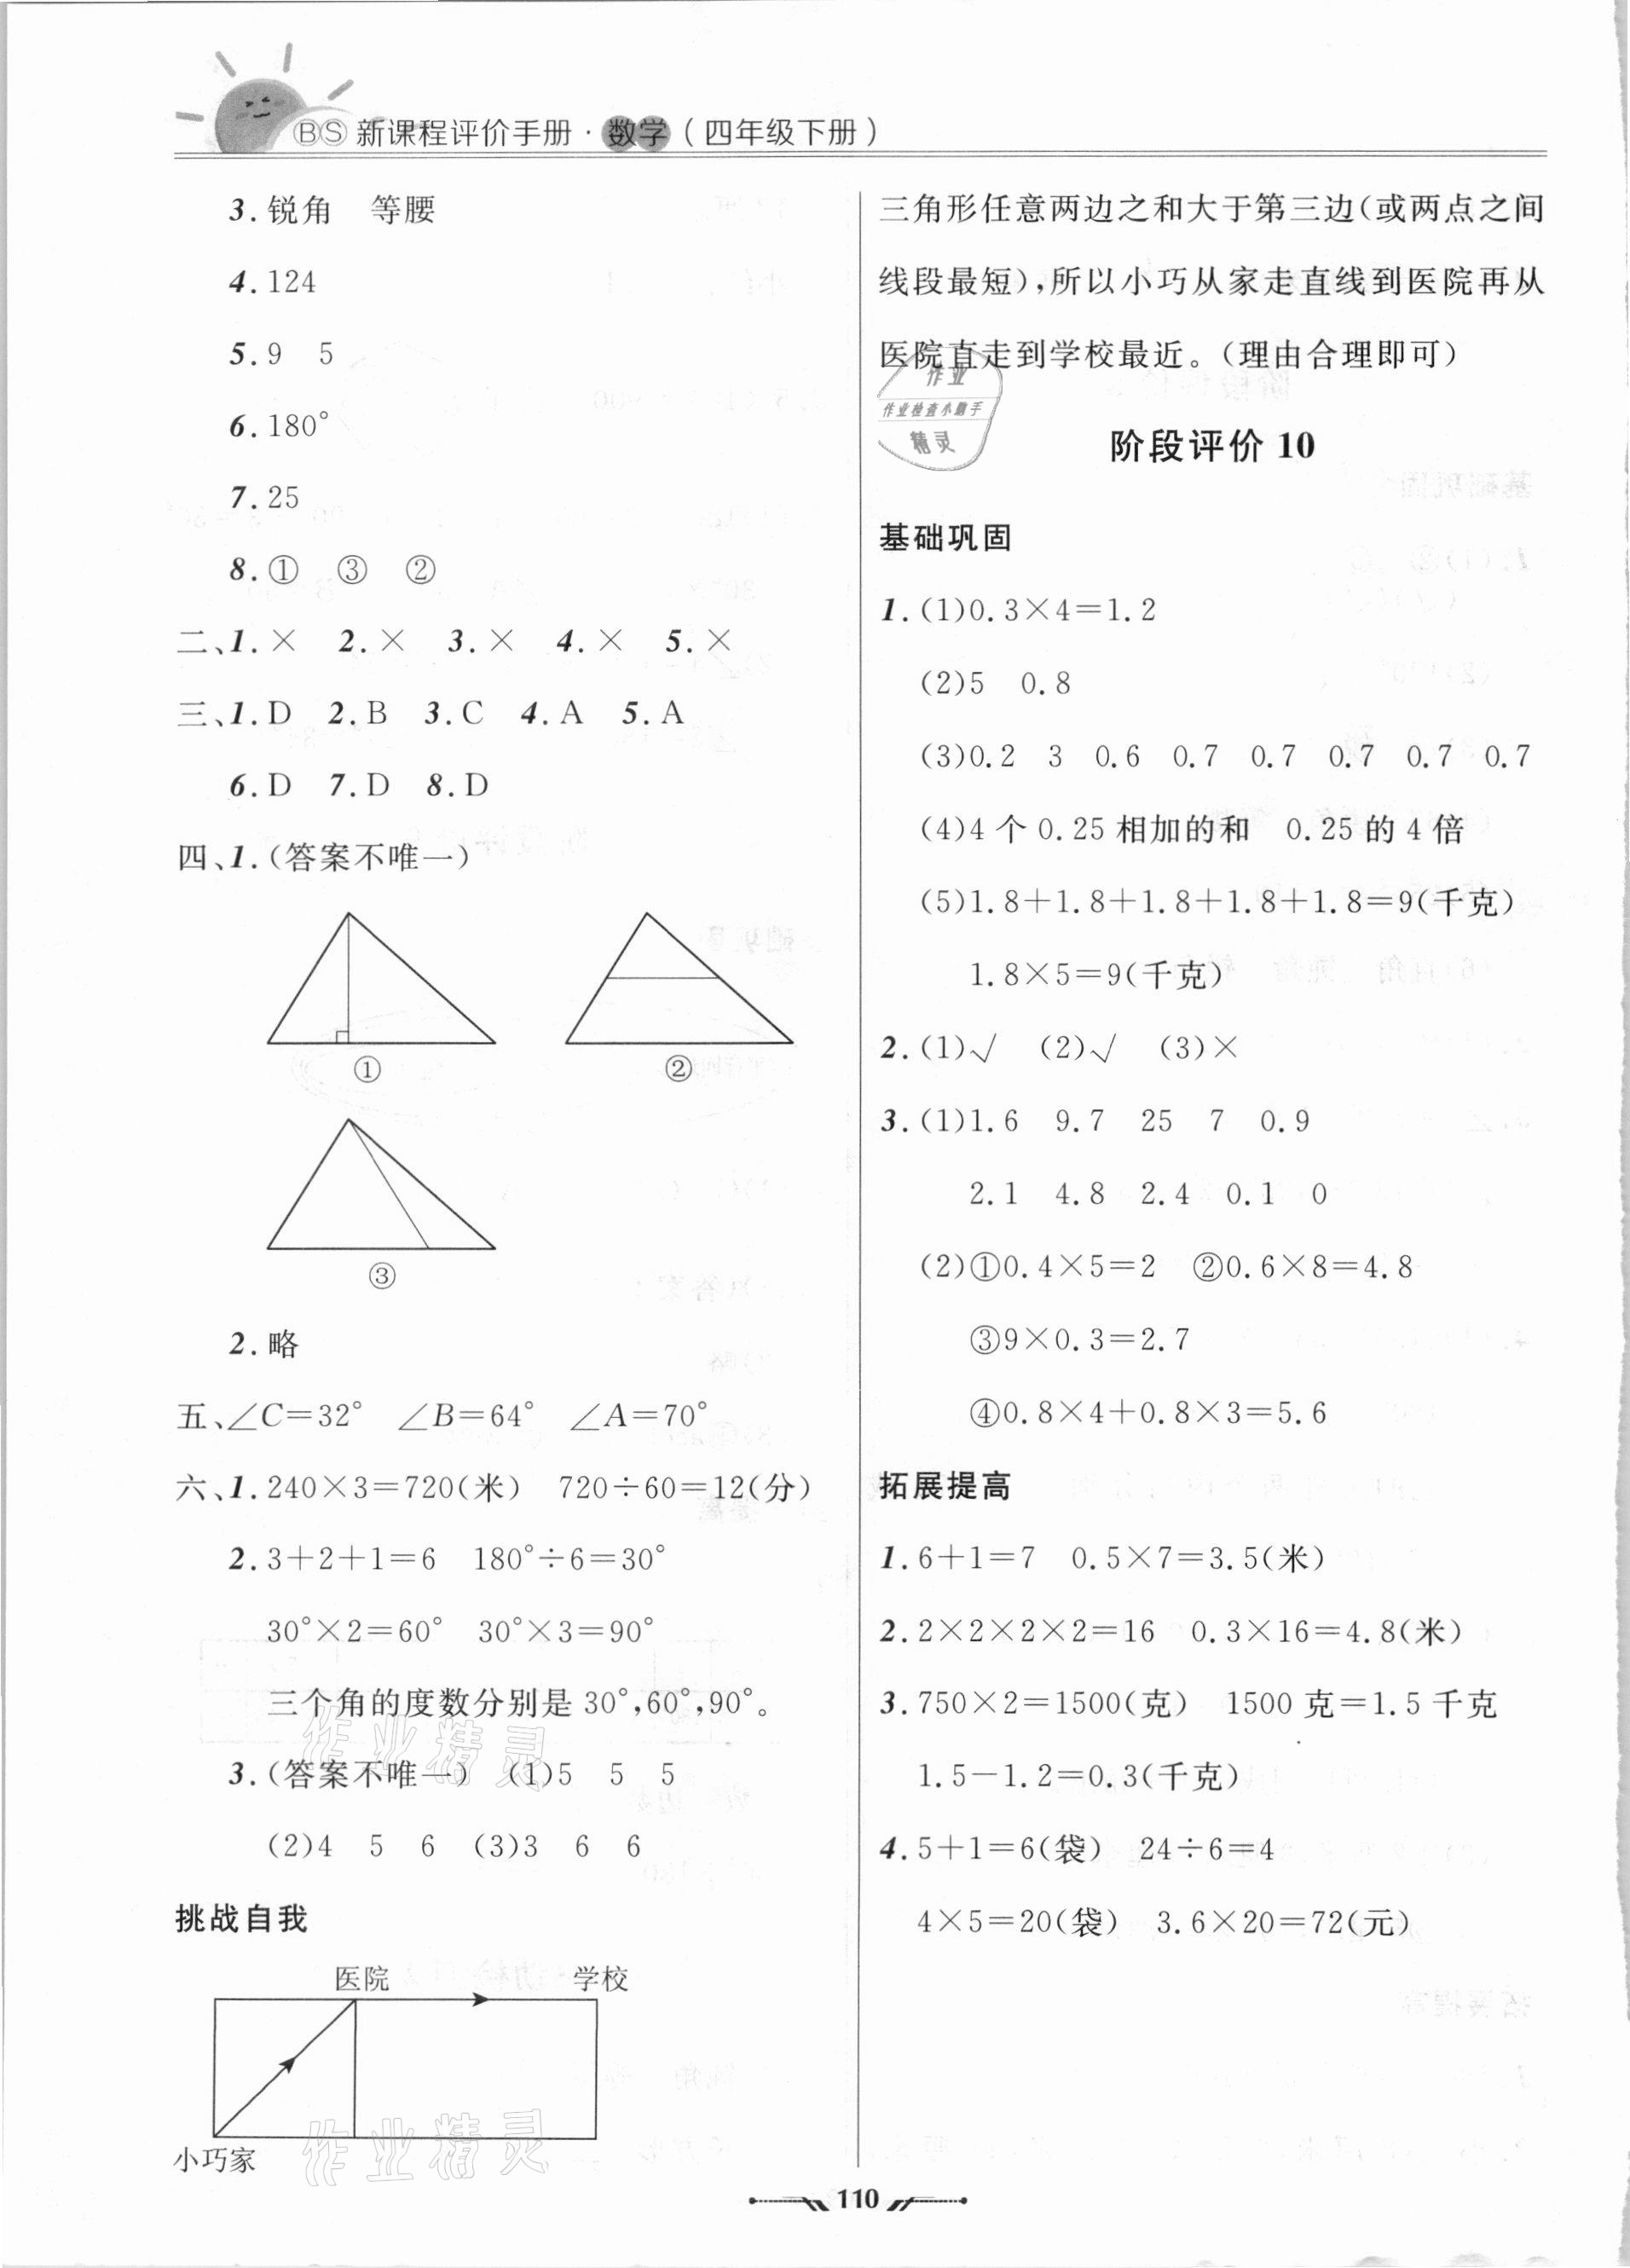 BS 新课程评价手册·数学（四年级下册）
3.锐角　等腰
4.124
5.9　5
6.180°
7.25
8.①　③　②
二、1.×　2.×　3.×　4.×　5.×
三、1.D　2.B　3.C　4.A　5.A
6.D　7.D　8.D
四、1.(答案不唯一)
①
②
③
2.略
五、∠C=32°　∠B=64°　∠A=70°
六、1.240×3=720(米)　720÷60=12(分)
2.3+2+1=6　180°÷6=30°
30°×2=60°　30°×3=90°
三个角的度数分别是30°,60°,90°。
3.(答案不唯一)　(1)5　5　5
(2)4　5　6　(3)3　6　6
挑战自我
医院　学校
小巧家
三角形任意两边之和大于第三边(或两点之间
线段最短),所以小巧从家走直线到医院再从
医院直走到学校最近。(理由合理即可)
作业
作业检查小助手
精灵
阶段评价10
基础巩固
1.(1)0.3×4=1.2
(2)5　0.8
(3)0.2　3　0.6　0.7　0.7　0.7　0.7　0.7
(4)4个0.25相加的和　0.25的4倍
(5)1.8+1.8+1.8+1.8+1.8=9(千克)
1.8×5=9(千克)
2.(1)√　(2)√　(3)×
3.(1)1.6　9.7　25　7　0.9
2.1　4.8　2.4　0.1　0
(2)①0.4×5=2　②0.6×8=4.8
③9×0.3=2.7
④0.8×4+0.8×3=5.6
拓展提高
1.6+1=7　0.5×7=3.5(米)
2.2×2×2×2=16　0.3×16=4.8(米)
3.750×2=1500(克)　1500克=1.5千克
1.5-1.2=0.3(千克)
4.5+1=6(袋)　24÷6=4
4×5=20(袋)　3.6×20=72(元)
作业精灵
作业精灵
110